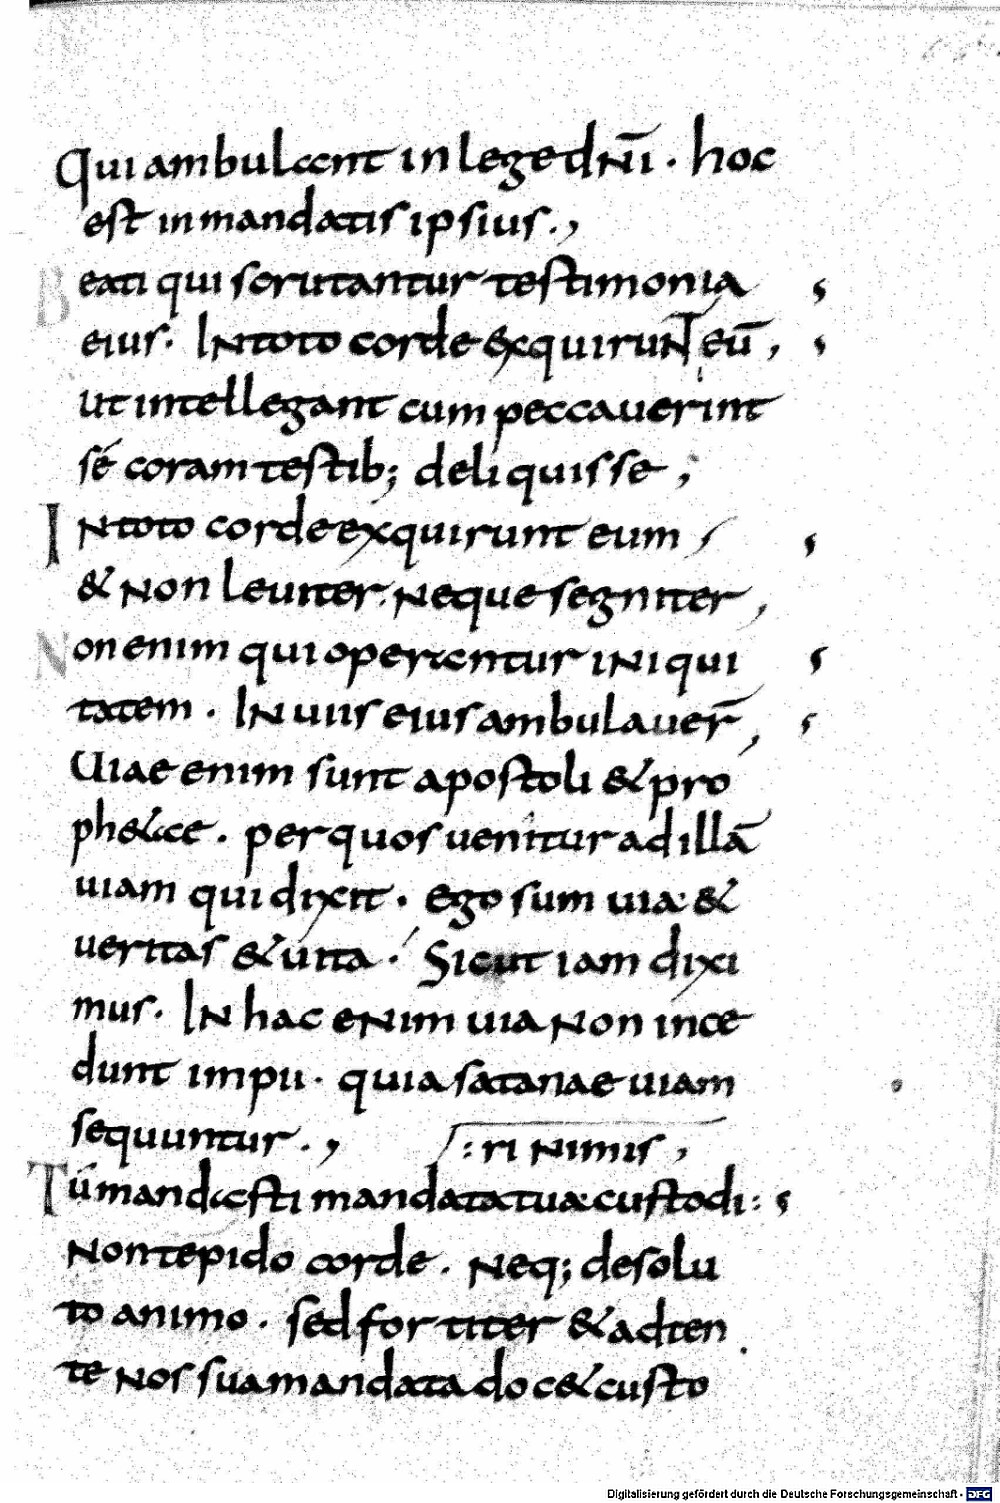 Qui ambulant in lege dn̄i · hoc
est in mandatis ipsius ·,
Beati qui scrutantur testimonia
eius · In toto corde exquirunt eū,
ut intellegant cum peccauerint
sé coram testib; deliquisse,
In toto corde exquirunt eum
& non leuiter. neque segniter,
Non enim qui operantur iniqui
tatem · In uiis eius ambulauer̄,
Uiae enim sunt apostoli & pro
ph&ae · per quos uenitur ad illā
uiam qui dixit · Ego sum uia &
ueritas & uita · Sicut iam dixi
mus · In hac enim uia non ince
dunt impii · quia satanae uiam
sequuntur ·, :ri nimis,
Tu mandasti mandata tua custodi:
Non tepido corde · Neq; desolu
to animo · sed fortiter & adten
te nos sua mandata doc& custo
Digitalisierung gefördert durch die Deutsche Forschungsgemeinschaft - DFG